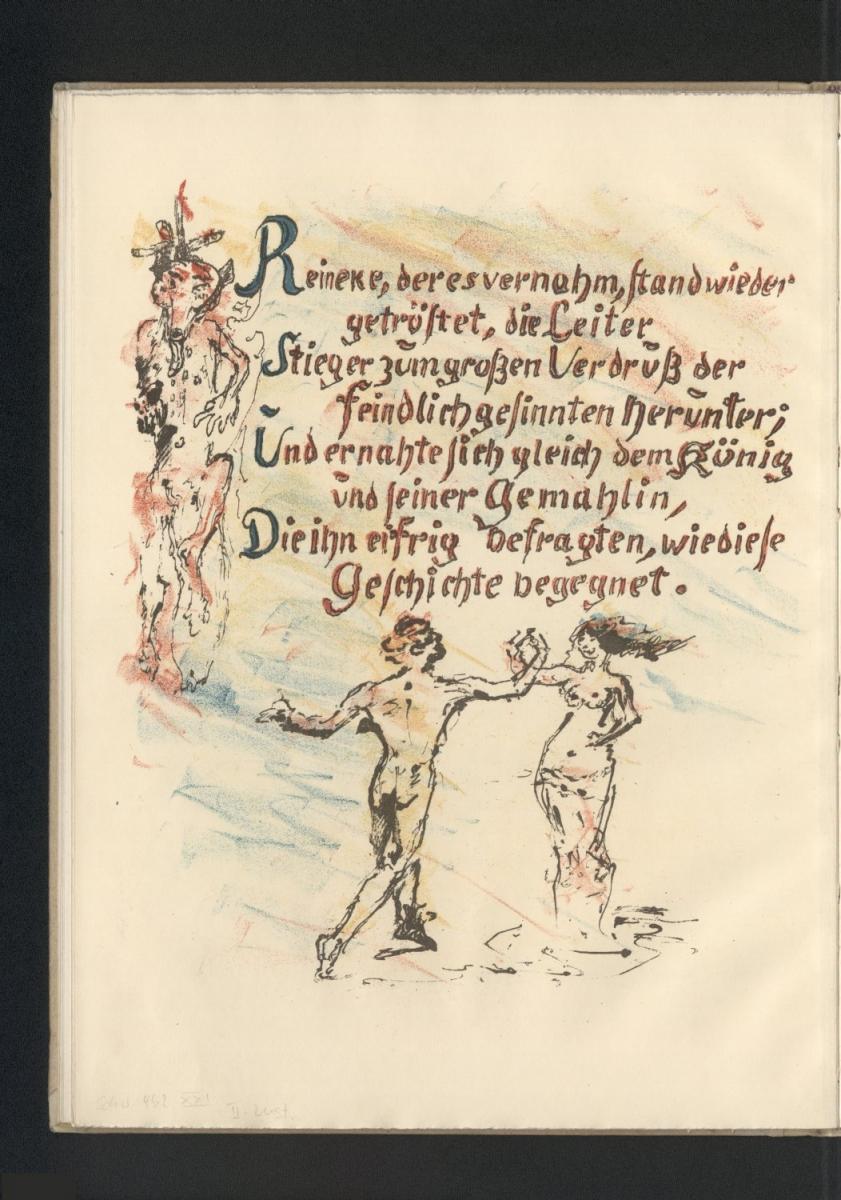 Reineke, der es vernahm, stand wieder
getröstet, die Leiter
Stieg er zum großen Verdruß der
feindlich gesinnten herunter;
Und er nahte sich gleich dem König
und seiner Gemahlin,
Die ihn eifrig befragten, wie diese
Geschichte begegnet.